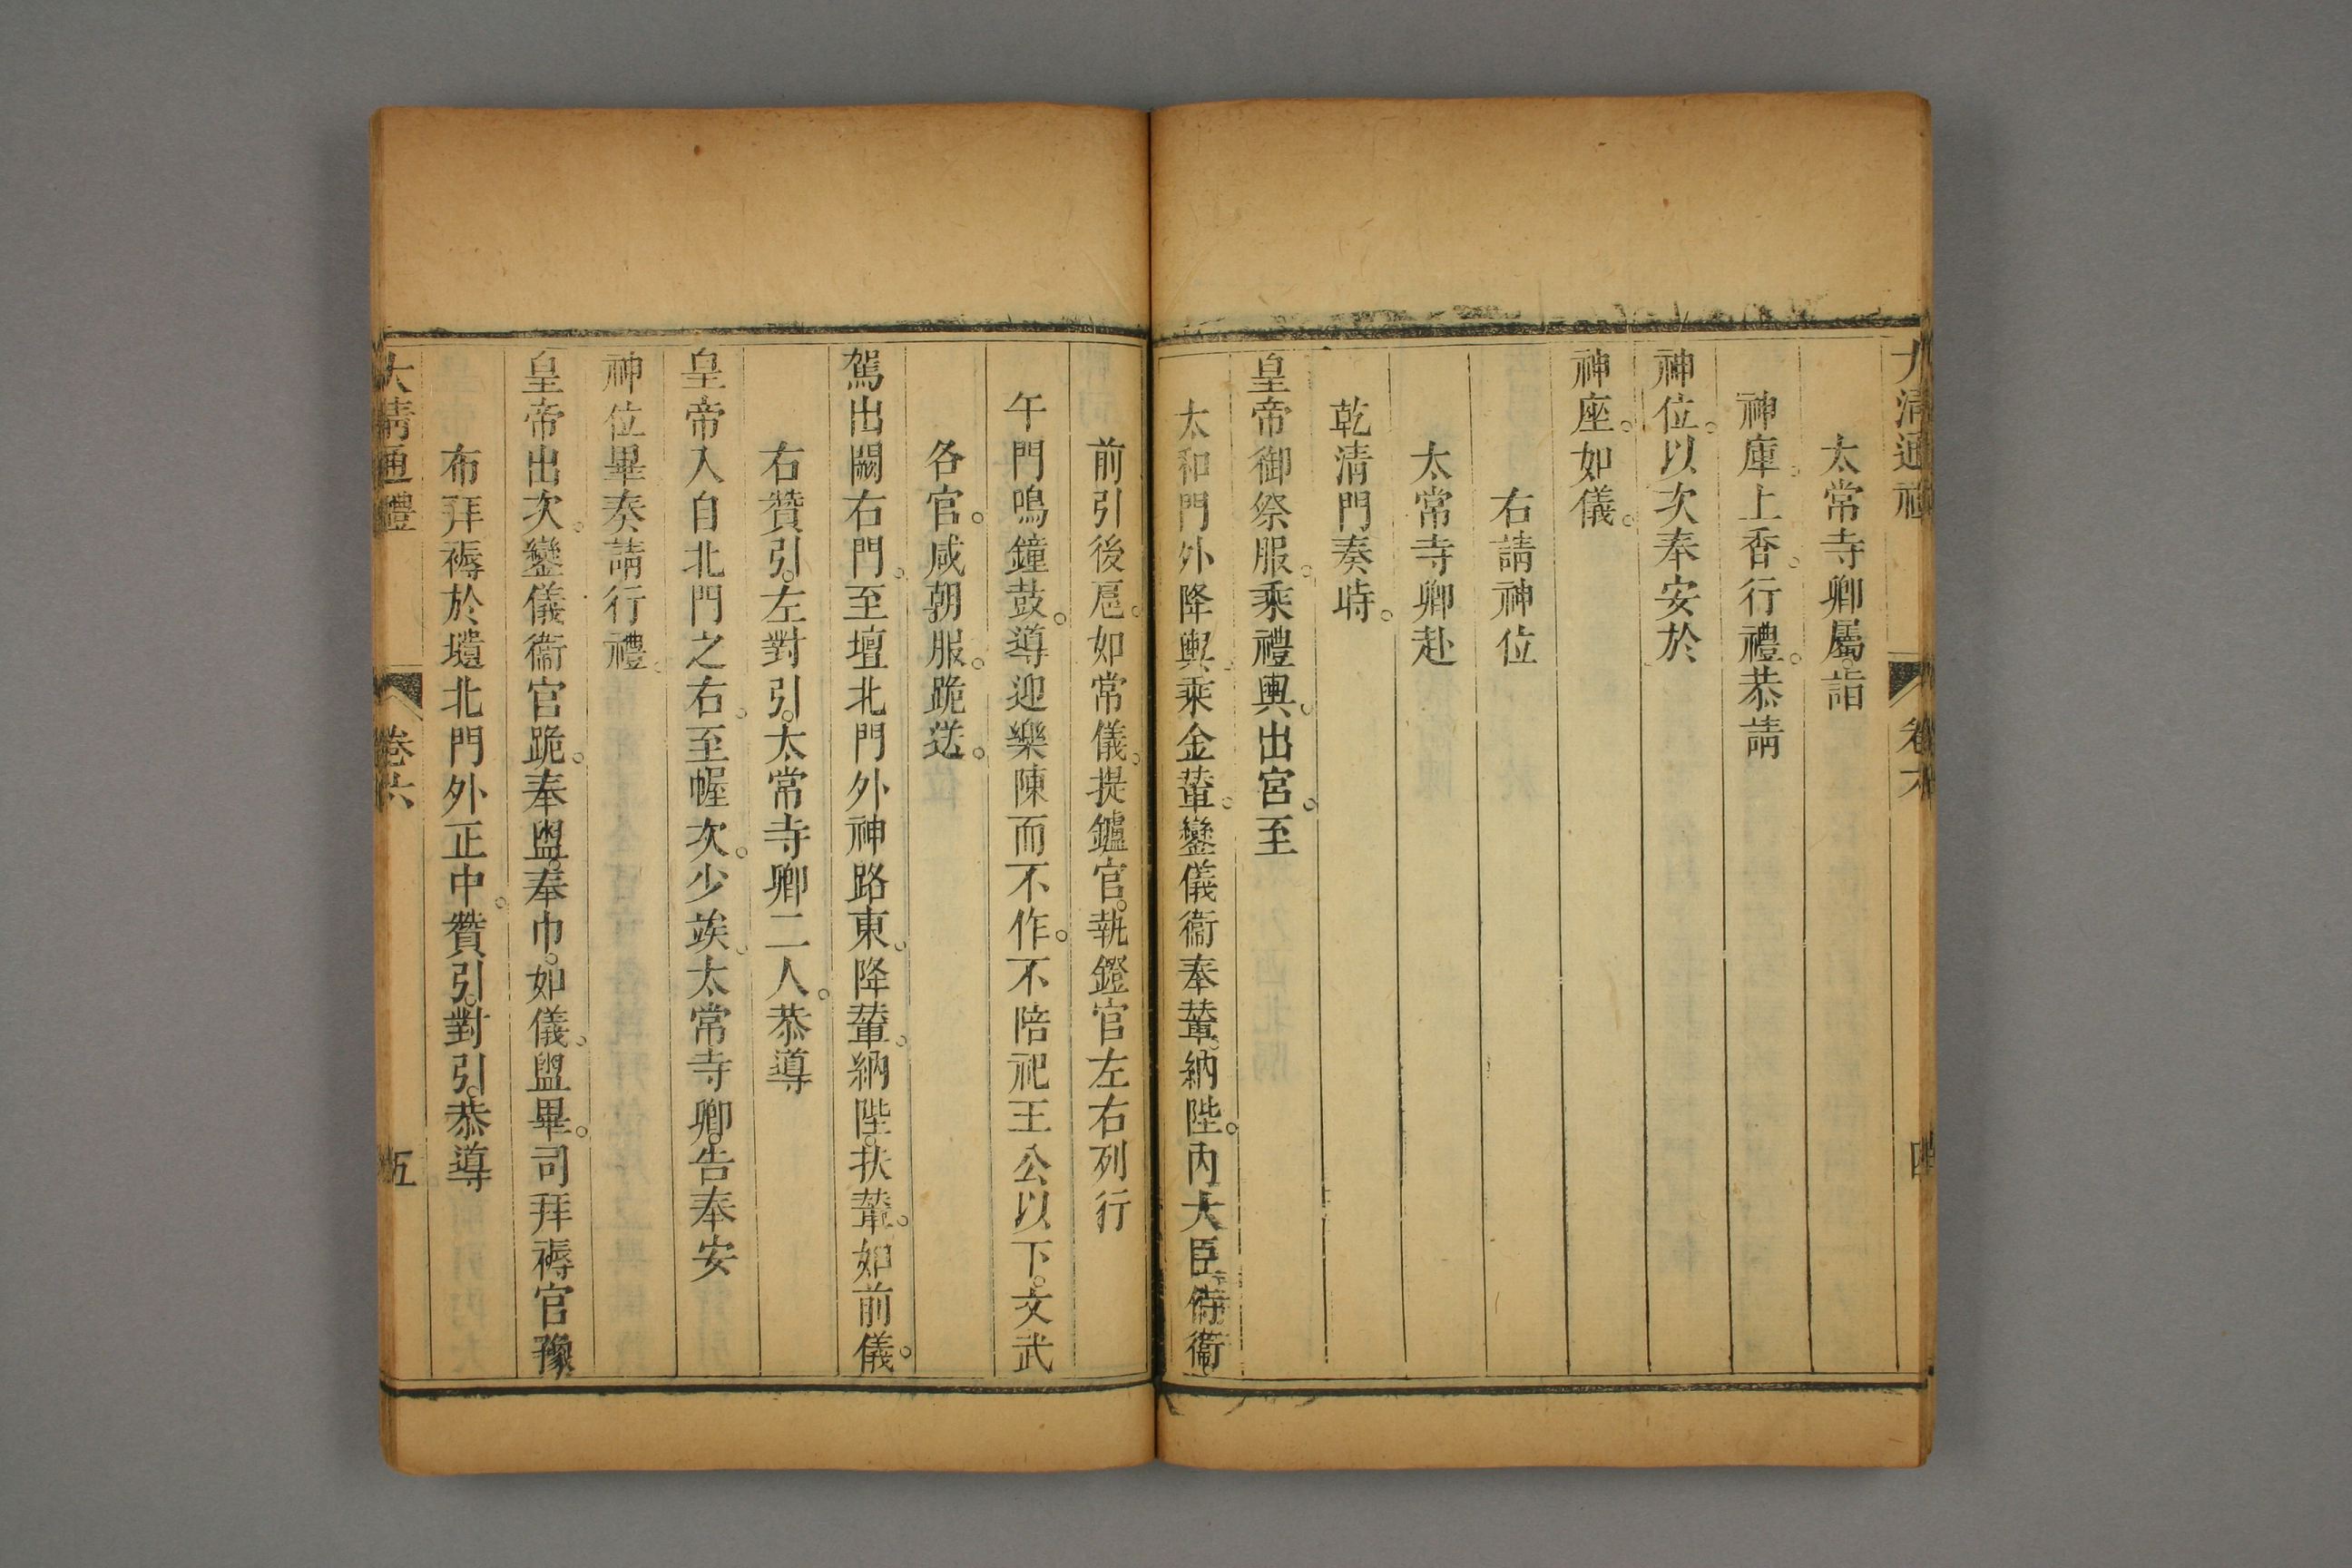 大清通禮 卷六 四
太常寺卿屬詣
神庫。上香。行禮。恭請
神位。以次奉安於
神座。如儀。
右請神位
太常寺卿赴
乾清門奏時。
皇帝御祭服。乘禮輿。出宮。至
太和門外降輿。乘金輦。鑾儀衞奉輦。納陛。內大臣侍衞
前引後扈。如常儀。提鑪官。執鐙官左右列行
午門鳴鐘鼓。導迎樂陳而不作。不陪祀王公以下。文武
各官。咸朝服。跪送。
駕出闕右門。至壇北門外神路東。降輦。納陛。扶輦。如前儀。
右贊引。左對引。太常寺卿二人。恭導
皇帝入自北門之右。至幄次。少竢。太常寺卿。告奉安
神位畢奏請行禮。
皇帝出次。鑾儀衞官跪。奉盥。奉巾。如儀。盥畢。司拜褥官豫
布拜褥於壝北門外正中。贊引。對引。恭導
大淸通禮 卷六 五